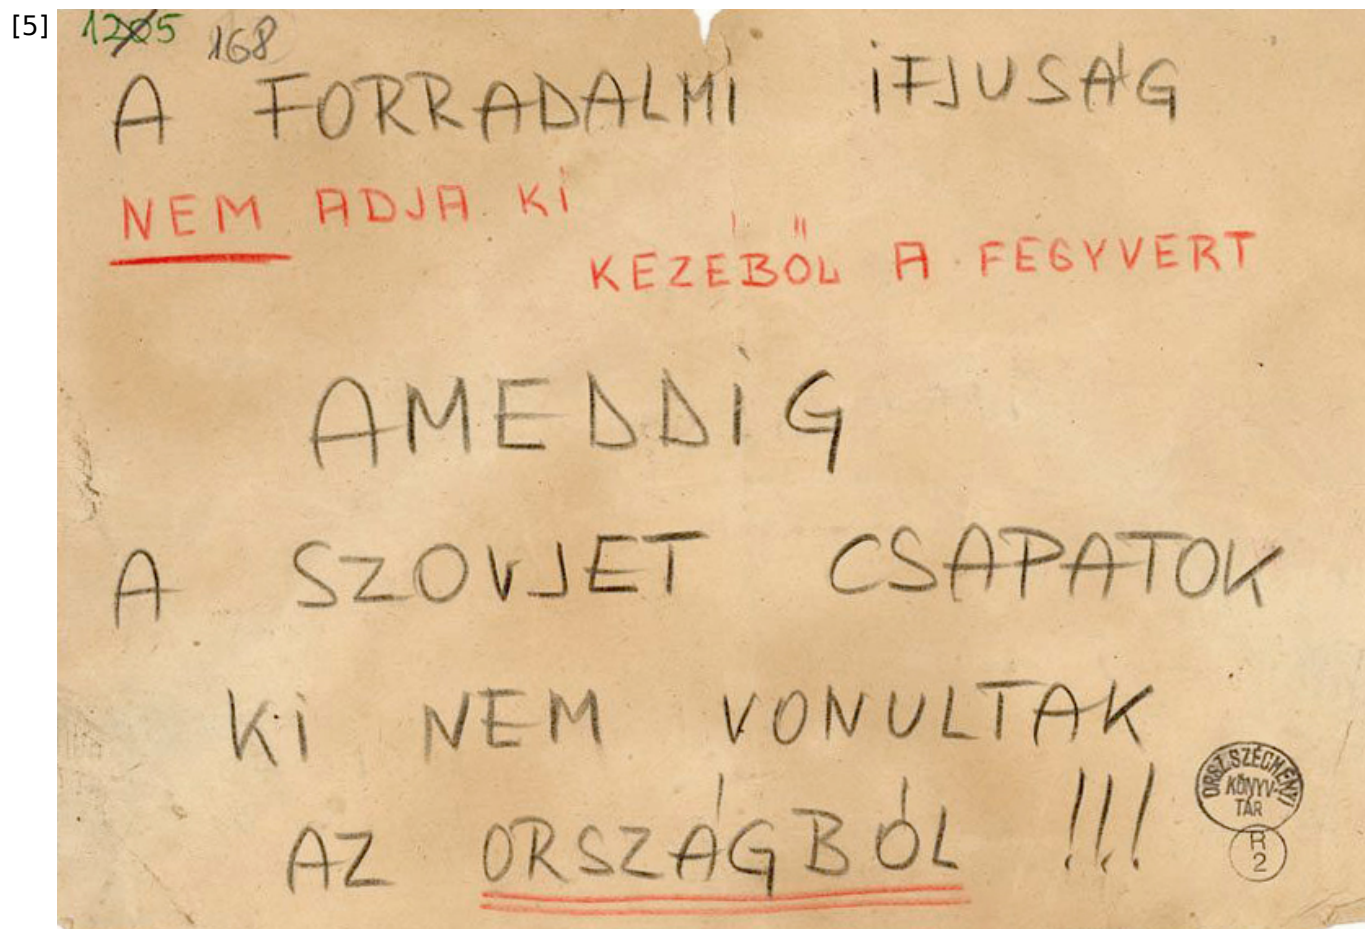 [5]
1205 168
A FORRADALMI IFJUSÁG
NEM ADJA KI
KEZÉBŐL A FEGYVERT
AMEDDIG
A SZOVJET CSAPATOK
KI NEM VONULTAK
AZ ORSZÁGBÓL !!!
ORSZ. SZÉCHÉNYI
KÖNYV-
TÁR
R
2